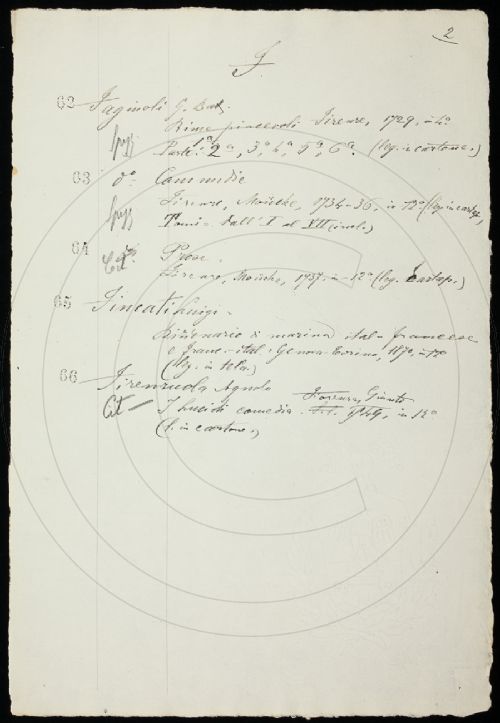 2
F.
62 Fagiuoli G. Bat.
Rime piacevoli Firenze, 1729, in 4º
Parte 1ª 2ª, 3ª, 4ª, 5ª, 6ª. (leg. in cartone.)
63 dº Commedie
Firenze, Moücke, 1734-36, in 12º (leg. in cartap.)
Tomi = dall' I al VII (incl.)
64 dº Prose.
Firenze, Moücke, 1737. in-12º (leg. cartap.)
65 Fincati Luigi.
Dizionario di marina ital-francese
e franc.-ital. Genova-Torino, 1870, in
(leg. in tela.)
66 Firenzuola Agnolo
Cit Firenze, Giunti
I lucidi comedia. 1549, in 12º
(l. in cartone.)